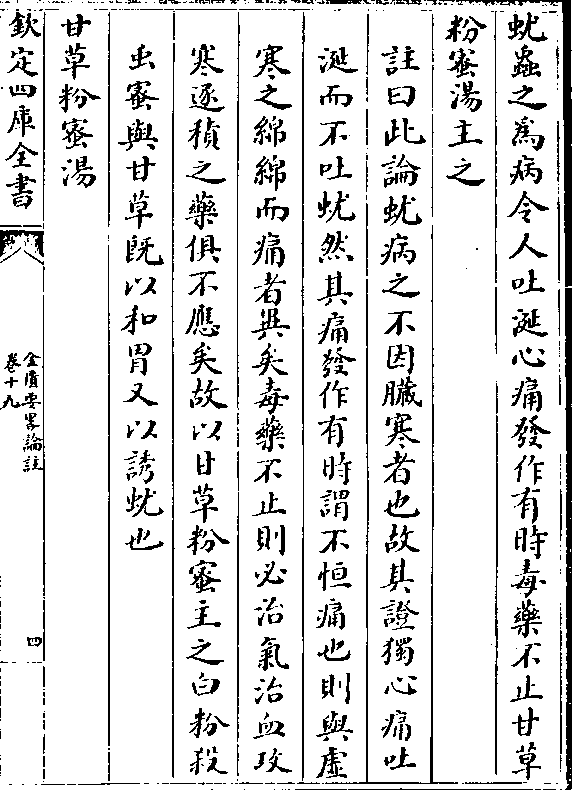 蚘蟲之為病令人吐涎心痛發作有時毒藥不止甘草
粉蜜湯主之
註曰此論蚘病之不因臟寒者也故其證獨心痛吐
涎而不吐蚘然其痛發作有時謂不恒痛也則與虛
寒之綿綿而痛者異矣毒藥不止則必治氣治血攻
寒逐積之藥俱不應矣故以甘草粉蜜主之白粉殺
虫蜜與甘草既以和胃又以誘蚘也
甘草粉蜜湯
欽定四庫全書
金匱要畧論註
卷十九
四